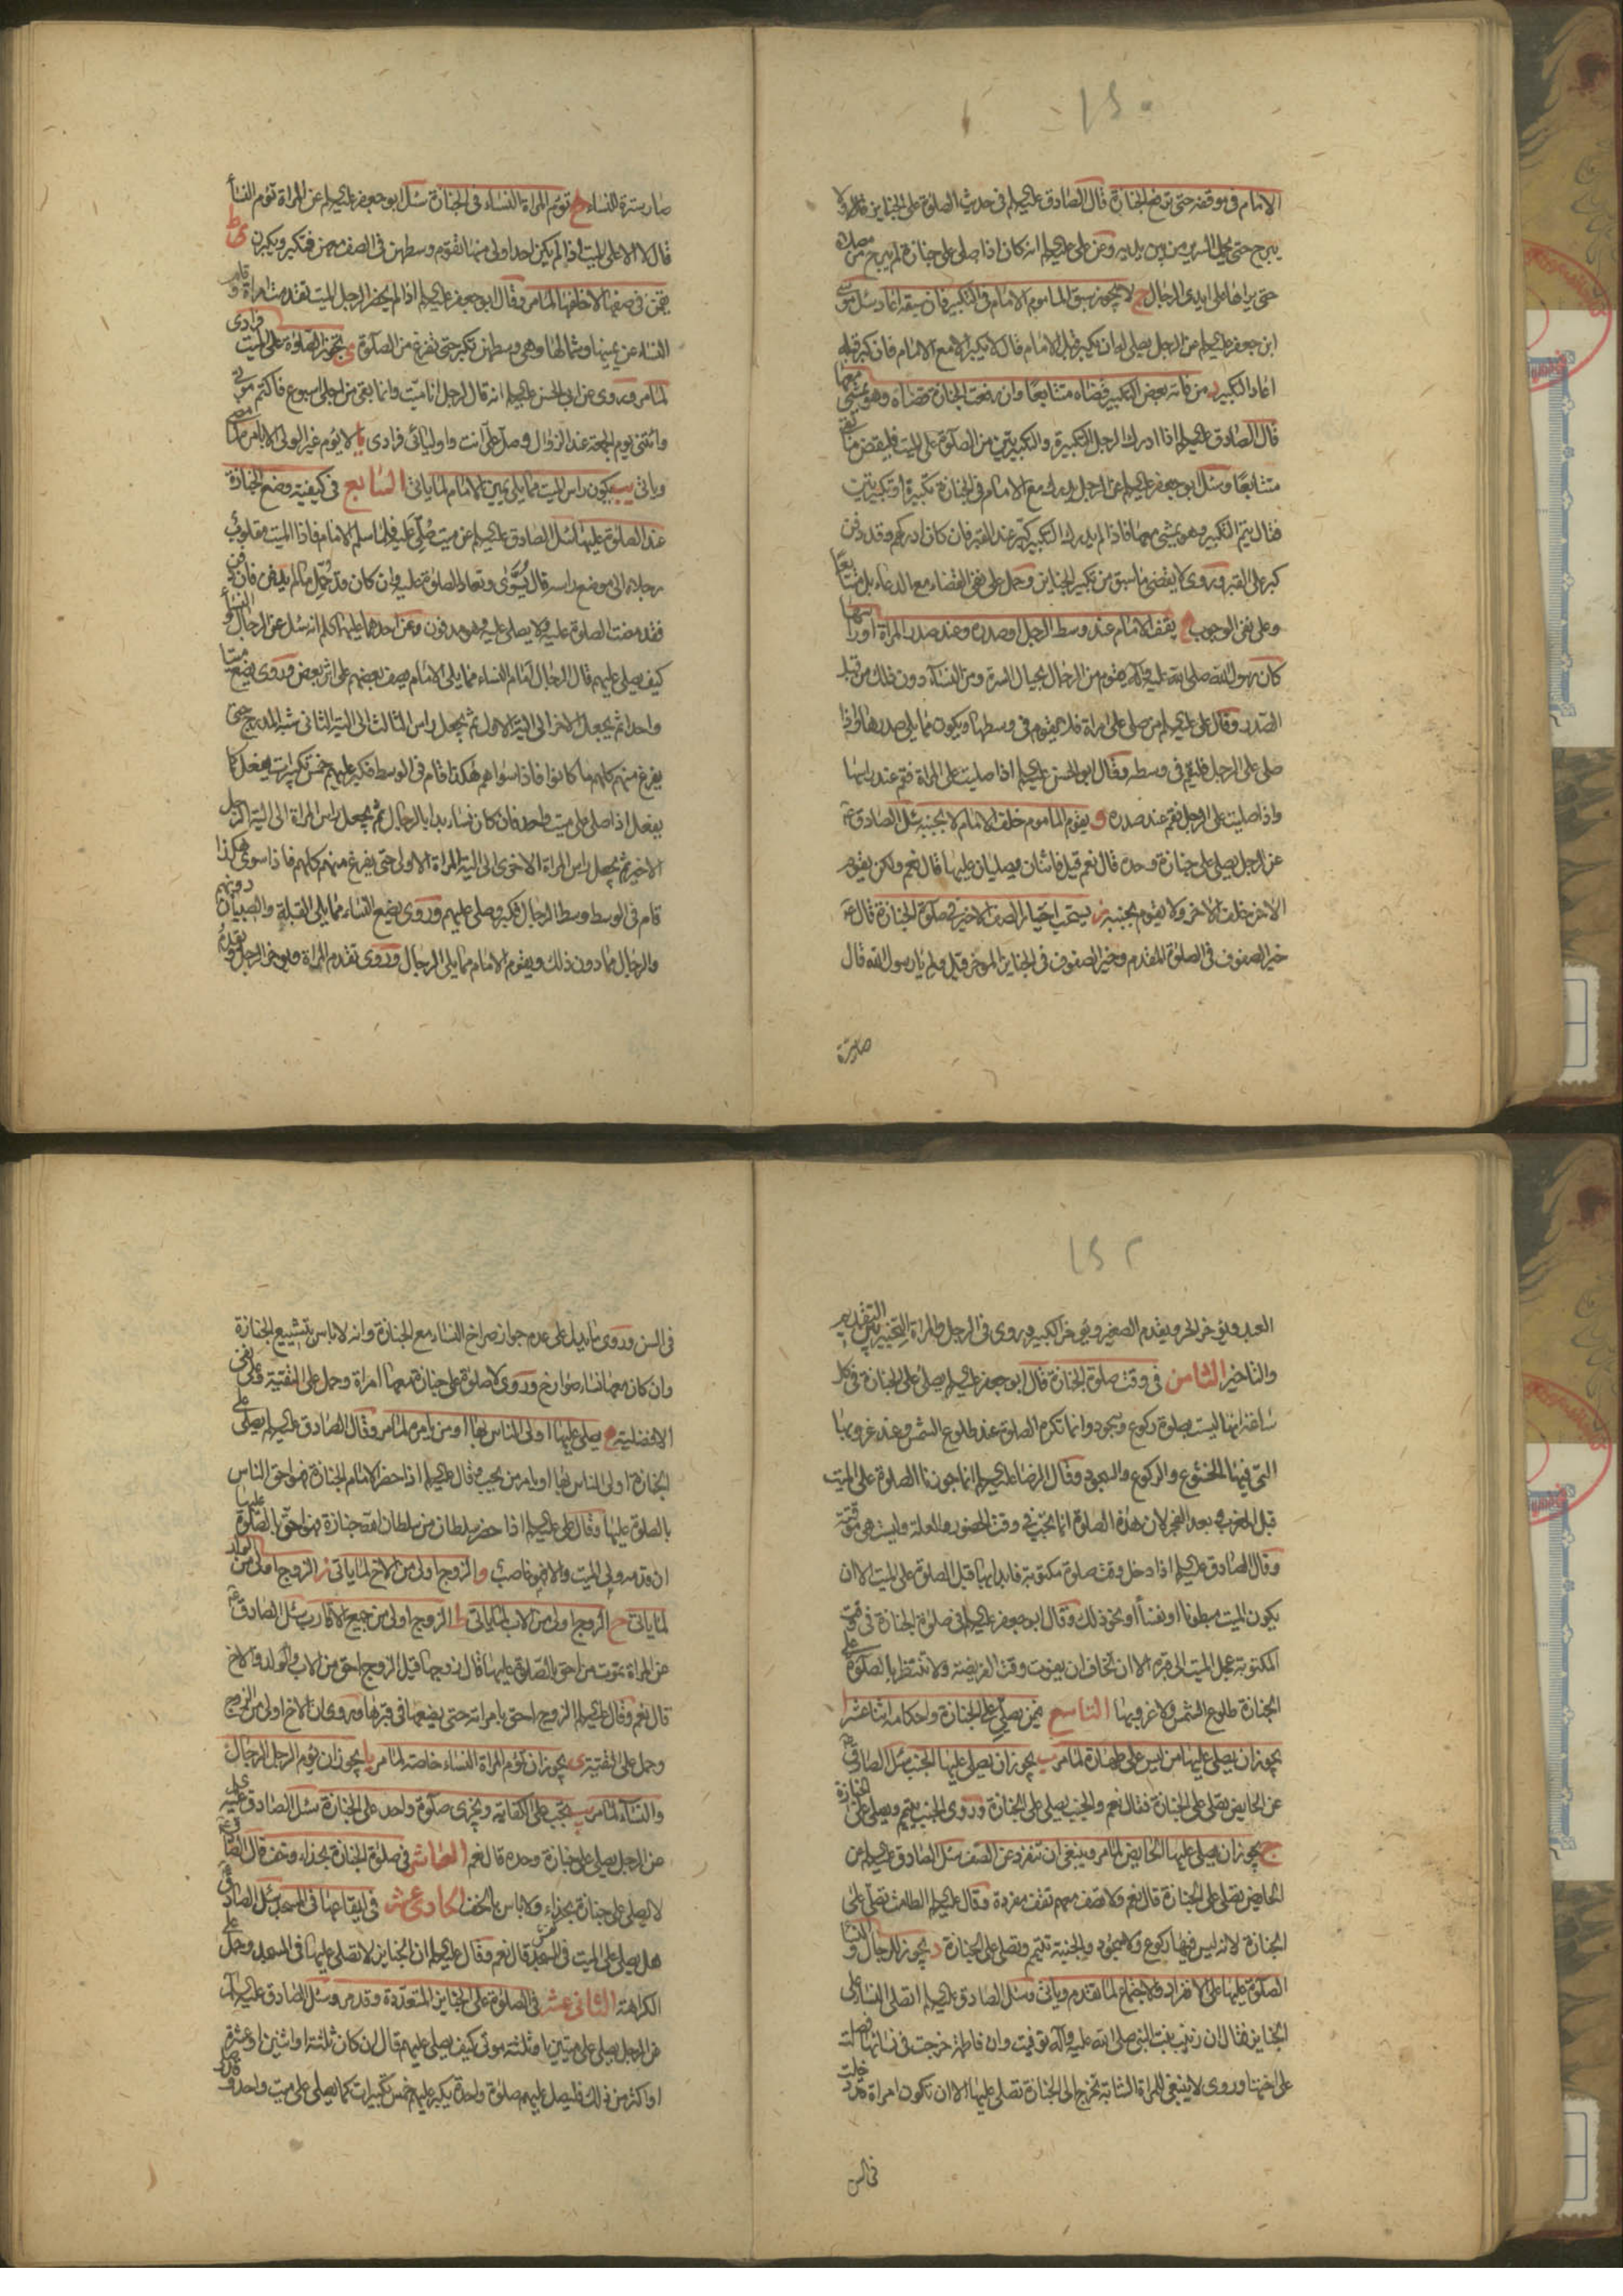 ١٥٠
الامام فى موقفه حتى ترفع الجنازة قال الصادق عليه السلم فى حديث الصلوة على الجنايز قال ولا
يبرح حتى يحمل السرير من بين يديه وعن على عليه السلم انه كان اذا صلى على جنازة لم يبرح من مصلاه
حتى يراها على ايدى الرجال ج لا يجوز سبق الماموم الامام فى التكبير فان سبقه اعاد سئل موسى
ابن جعفر عليه السلم عن الرجل يصلى له ان يكبر قبل الامام قال لا يكبر الا مع الامام فان كبر قبله
اعاد التكبير د من فاته بعض التكبير قضاه متتابعا وان رفعت الجنازة قضاه وهو يمشى معها
قال الصادق عليه السلم اذا ادرك الرجل التكبيرة والتكبيرتين من الصلوة على الميت فليقض ما بقى
متتابعا وسئل ابو جعفر عليه السلم عن الرجل يدرك مع الامام فى الجنازة تكبيرة او تكبيرتين
فقال يتم التكبير وهو يمشى معها فاذا لم يدرك التكبير كبر عند القبر فان كان ادركهم وقد دفن
كبر على القبر وروى لا يقضى ما سبق من تكبير الجنايز وحمل على نفى القضاء مع الدعاء بل متتابعا
وعلى نفى الوجوب ه يقف الامام عند وسط الرجل او صدره وعند صدر المراة او راسها
كان رسول الله صلى الله عليه وآله يقوم من الرجال بحيال السرة ومن النساء دون ذلك من قبل
الصدر وقال على عليه السلم من صلى على امراة فلا يقوم فى وسطها ويكون مما يلى صدرها واذا
صلى على الرجل فليقم فى وسطه وقال ابو الحسن عليه السلم اذا صليت على المراة فقم عند راسها
واذا صليت على الرجل فقم عند صدره و يقوم الماموم خلف الامام لا بجنبه سئل الصادق ع
عن الرجل يصلى على جنازة وحده قال نعم قيل فاثنان يصليان عليها قال نعم ولكن يقوم
الاخر خلف الاخر ولا يقوم بجنبه ز يستحب اختيار الصف الاخير فى صلوة الجنازة قال ع
خير الصفوف فى الصلوة المقدم وخير الصفوف فى الجنايز المؤخر قيل ولم يا رسول الله قال
صار سترة
صار سترة للنساء ح تؤم المراة النساء فى الجنازة سئل ابو جعفر عليه السلم عن المراة تؤم النساء
قال لا الا على الميت اذا لم يكن احد اولى منها تقوم وسطهن فى الصف معهن فتكبر ويكبرن ط
يقمن فى صفها لا خلفها لما مر وقال ابو جعفر عليه السلم اذا لم يحضر الرجل الميت تقدمت امراة وقام
النساء عن يمينها وشمالها وهى وسطهن تكبر حتى تفرغ من الصلوة ى تجوز الصلوة على الميت فرادى
لما مر وروى عن ابى الحسن عليه السلم انه قال لرجل انا ميت وانما بقى من اجلى اسبوع فاكتم موتى
وائتنى يوم الجمعة عند الزوال وصل على انت واوليائى فرادى يا لا يؤم غير الولى الا بامره لما مضى
وياتى يب يكون راس الميت مما يلى يمين الامام لما ياتى السابع فى كيفية وضع الجنازة
عند الصلوة عليها سئل الصادق عليه السلم عن ميت صلى عليه فلما سلم الامام فاذا الميت مقلوب
رجلاه الى موضع راسه قال يسوى وتعاد الصلوة عليه وان كان قد حمل ما لم يدفن فان دفن
فقد مضت الصلوة عليه ولا يصلى عليه وهو مدفون وعن احدهما عليهما السلم انه سئل عن الرجال والنساء
كيف يصلى عليهم قال الرجال امام النساء مما يلى الامام يصف بعضهم على اثر بعض وروى يضع ميتا
واحدا ثم يجعل الاخر الى الية الاول ثم يجعل راس الثالث الى الية الثانى شبه المدرج حتى
يفرغ منهم كلهم ما كانوا فاذا سواهم هكذا قام فى الوسط فكبر عليهم خمس تكبيرات يفعل كما
يفعل اذا صلى على ميت واحد فان كان نساء بدا بالرجال ثم يجعل راس المراة الى الية الرجل
الاخير ثم يجعل راس المراة الاخرى الى الية المراة الاولى حتى يفرغ منهم كلهم فاذا سوى هكذا
قام فى الوسط وسط الرجال فكبر وصلى عليهم وروى يضع النساء مما يلى القبلة والصبيان دونهم
والرجال مما دون ذلك ويقوم الامام مما يلى الرجال وروى تقدم المراة ويؤخر الرجل ويقدم
١٥٢
العبد ويؤخر الحر ويقدم الصغير ويؤخر الكبير وروى فى الرجل والمراة التخيير بين التقديم
والتاخير الثامن فى وقت صلوة الجنازة قال ابو جعفر عليه السلم يصلى على الجنازة فى كل
ساعة انها ليست بصلوة ركوع وسجود وانما تكره الصلوة عند طلوع الشمس وعند غروبها
التى فيها الخشوع والركوع والسجود وقال الرضا عليه السلم انما جوزنا الصلوة على الميت
قبل المغرب وبعد الفجر لان هذه الصلوة انما تجب فى وقت الحضور والعلة وليست هى موقتة
وقال الصادق عليه السلم اذا دخل وقت صلوة مكتوبة فابدا بها قبل الصلوة على الميت الا ان
يكون الميت مبطونا او نفساء او نحو ذلك وقال ابو جعفر عليه السلم فى صلوة الجنازة فى وقت
المكتوبة عجل الميت الى قبره الا ان تخاف ان يفوت وقت الفريضة ولا تنتظر بالصلوة على
الجنازة طلوع الشمس ولا غروبها التاسع فيمن يصلى على الجنازة واحكامه اثنا عشر ا
يجوز ان يصلى عليها من ليس على طهارة لما مر ب يجوز ان يصلى عليها الجنب سئل الصادق ع
عن الحايض تصلى على الجنازة فقال نعم والجنب يصلى على الجنازة وروى الجنب يتيمم ويصلى على الجنازة
ج يجوز ان يصلى عليها الحايض لما مر وينبغى ان تنفرد عن الصف سئل الصادق عليه السلم عن
الحايض تصلى على الجنازة قال نعم ولا تصف معهم تقف مفردة وقال عليه السلم الطامث تصلى على
الجنازة لانه ليس فيها ركوع ولا سجود والجنبة تتيمم وتصلى على الجنازة د يجوز للرجال والنساء
الصلوة عليها على الانفراد والاجتماع لما تقدم وياتى وسئل الصادق عليه السلم اتصلى النساء على
الجنايز فقال ان زينب بنت النبى صلى الله عليه وآله توفيت وان فاطمة خرجت فى نسائها فصلت
على اختها وروى لا ينبغى للمراة الشابة تخرج الى الجنازة تصلى عليها الا ان تكون امراة قد دخلت
فى السن
فى السن وروى ما يدل على عدم جواز صراخ النساء مع الجنازة وانه لا باس بتشييع الجنازة
وان كان معها نساء صوارخ وروى لا صلوة على جنازة معها امراة وحمل على التقية وعلى نفى
الافضلية ه يصلى عليها اولى الناس بها او من يامره لما مر وقال الصادق عليه السلم يصلى على
الجنازة اولى الناس بها او يامر من يحب وقال عليه السلم اذا حضر الامام الجنازة فهو احق الناس
بالصلوة عليها وقال على عليه السلم اذا حضر سلطان من سلطان الله جنازة فهو احق بالصلوة عليها
ان قدمه ولى الميت والا فهو غاصب و الزوج اولى من الاخ لما ياتى ز الزوج اولى من الولد
لما ياتى ح الزوج اولى من الاب لما ياتى ط الزوج اولى من جميع الاقارب سئل الصادق ع
عن المراة تموت من احق بالصلوة عليها قال زوجها قيل الزوج احق من الاب والولد والاخ
قال نعم وقال عليه السلم الزوج احق بامراته حتى يضعها فى قبرها وروى ان الاخ اولى من الزوج
وحمل على التقية ى يجوز ان تؤم المراة النساء خاصة لما مر يا يجوز ان يؤم الرجل الرجال
والنساء لما مر يب تجب على الكفاية وتجزى صلوة واحد على الجنازة سئل الصادق عليه السلم
عن الرجل يصلى على جنازة وحده قال نعم العاشر فى صلوة الجنازة بحذاء وخف قال الصادق ع
لا يصلى على جنازة بحذاء ولا باس بالخف الحادى عشر فى ايقاعها فى المسجد سئل الصادق ع
هل يصلى على الميت فى المسجد قال نعم وقال عليه السلم ان الجنايز لا تصلى عليها فى المسجد وحمل على
الكراهة الثانى عشر فى الصلوة على الجنايز المتعددة وقد مر وسئل الصادق عليه السلم
عن الرجل يصلى على ميتين او ثلثة موتى كيف يصلى عليهم قال ان كان ثلثة او اثنين او عشرة
او اكثر من ذلك فليصل عليهم صلوة واحدة يكبر عليهم خمس تكبيرات كما يصلى على ميت واحد وقد